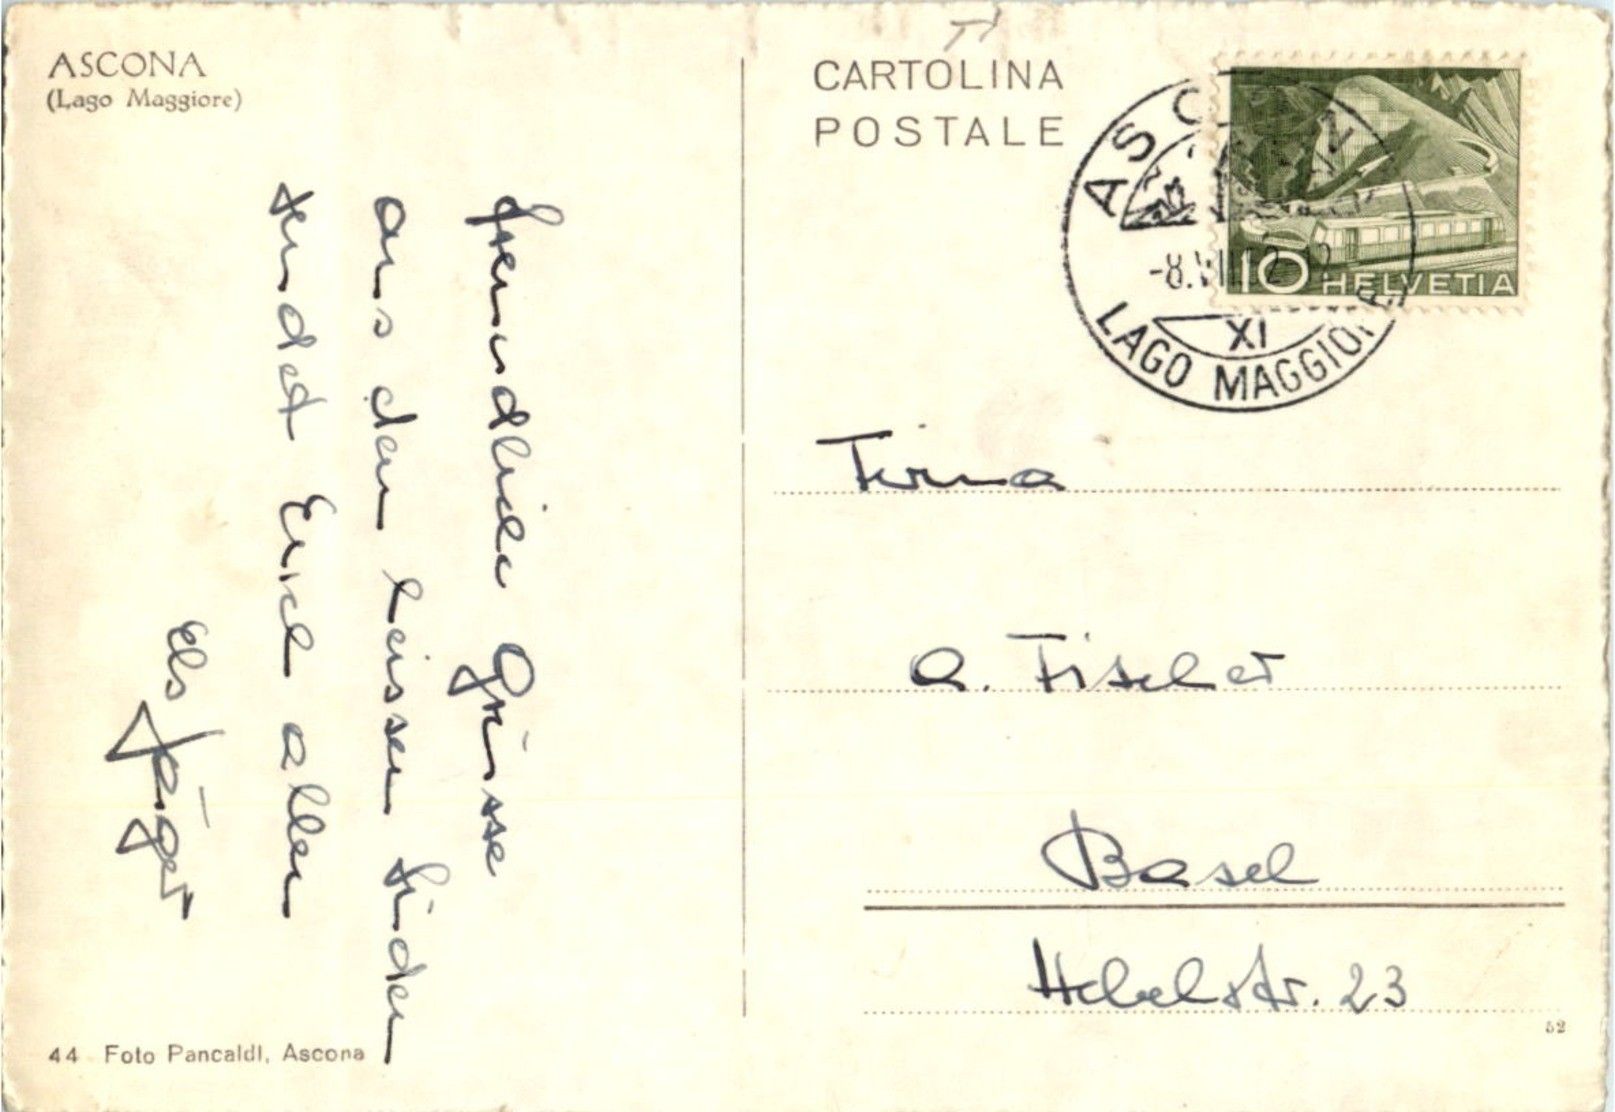 ASCONA
(Lago Maggiore)
Freundliche Grüsse
aus dem heissen Süden
sendet Euch allen
Els Jäger
44 Foto Pancaldi, Ascona
CARTOLINA
POSTALE
ASCONA
-8.VII.52
XI
LAGO MAGGIORE
10 HELVETIA
Firma
A. Fischer
Basel
Hebelstr. 23
52